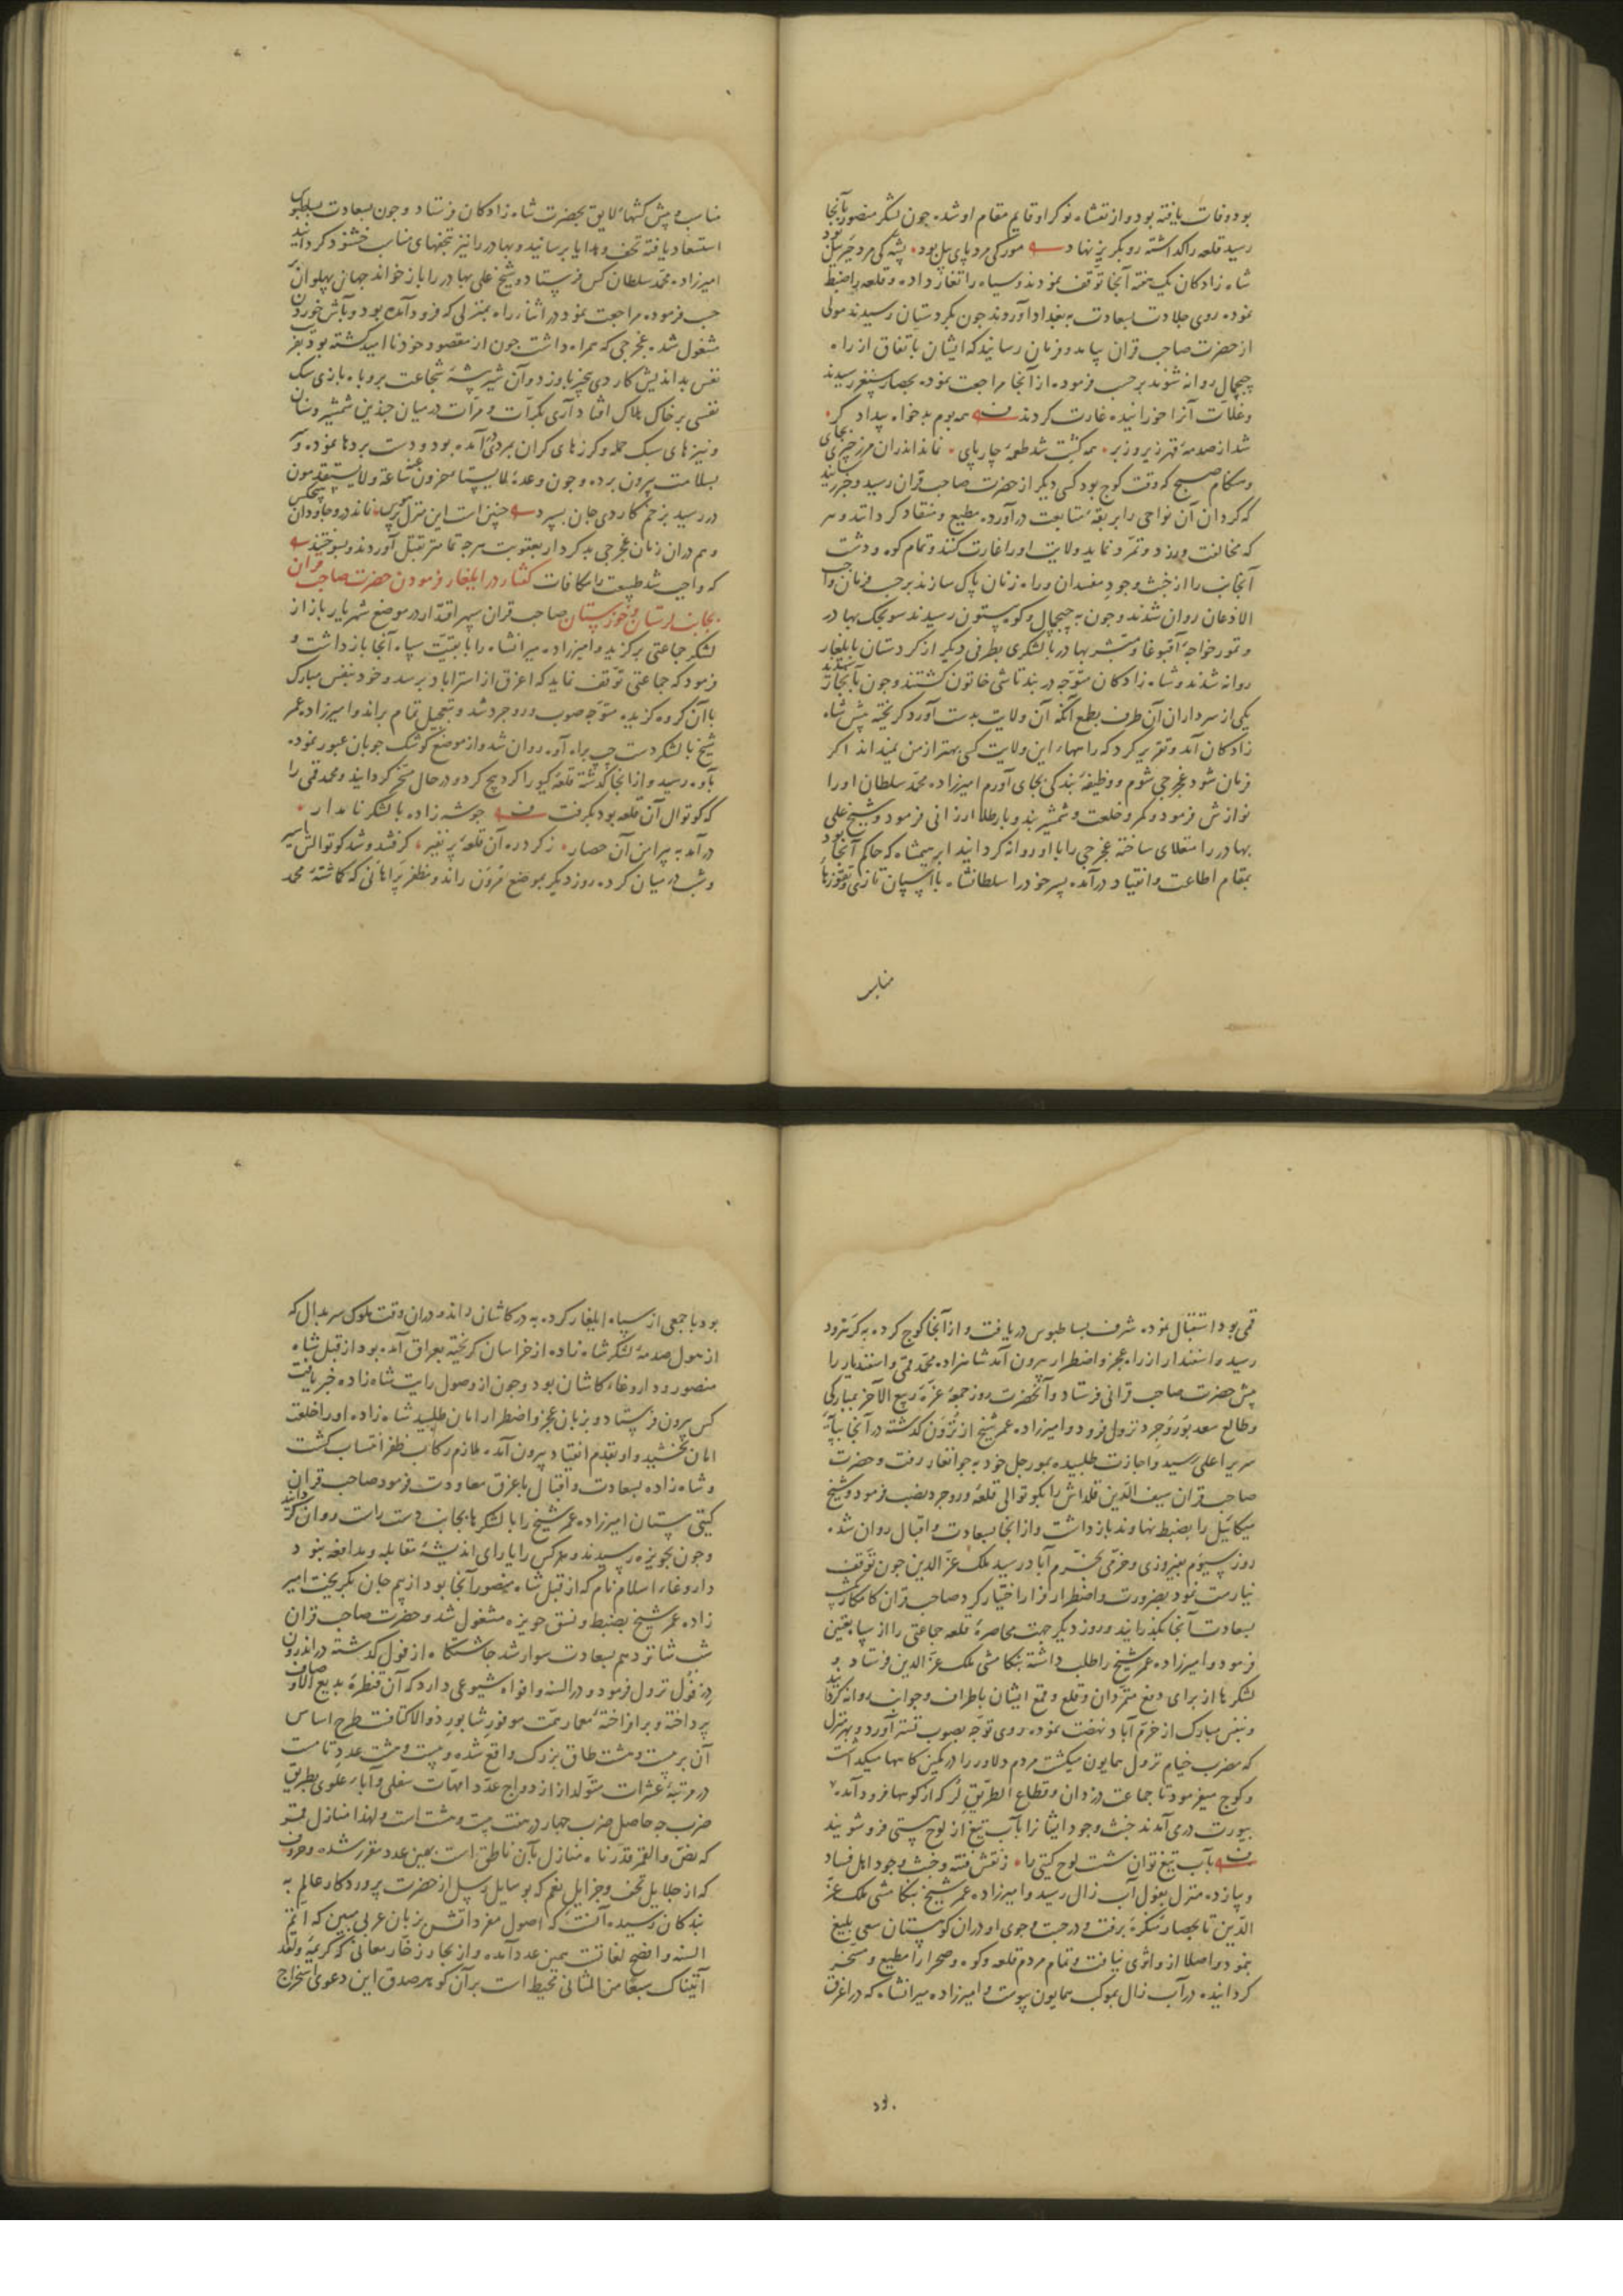 بود وفات یافته بود و از تغتشاه نوکر او قایم مقام او شده چون لشکر منصور بآنجا
رسید قلعه را کذاشته رو بکریز نهاد مور کی مرد پای پیل بود پشه کی مرد جبرئیل بود
شاه زادکان یک هفته آنجا توقف نمودند و سپاه را تغار داده و قلعه را ضبط
نموده روی جلادت بسعادت به بغداد آوردند چون بکردستان رسیدند مولی
از حضرت صاحب قران پیامد و فرمان رسانید که ایشان باتفاق از راه
چمچال روانه شوند بر حسب فرموده از آنجا مراجعت نموده بحصار سنقر رسیدند
و غلات آنرا خورانیده غارت کردند همه بوم بدخواه بیداد کر
شد از صدمه قهر زیر و زبر همه کشت شد طعمه چارپای نماند اندران مرز چیزی بجای
و هنکام صبح که وقت کوچ بود کسی دیکر از حضرت صاحب قران رسید و خبر رسانید
که کردان آن نواحی را بربقه متابعت درآورده مطیع و منقاد کردانند و هر
که مخالفت ورزد و تمرد نماید ولایت او را غارت کنند و تمام کوه و دشت
آنجانب را از خبث وجود مفسدان و راه زنان پاک سازند بر حسب فرمان واجب
الاذعان روان شدند و چون به چمچال و کوه بیستون رسیدند سونجک بهادر
و تمور خواجه آقبوغا و مبشر بهادر با لشکری بطرفی دیکر از کردستان بایلغار
روانه شدند و شاه زادکان متوجه دربند تاشی خاتون کشتند و چون بآنجا رسیدند
یکی از سرداران آن طرف بطمع آنکه آن ولایت بدست آورد کریخته پیش شاه
زادکان آمد و تقریر کرد که راههاء این ولایت کسی بهتر از من نمیداند اکر
فرمان شود غجرجی شوم و وظیفه بندکی بجای آورم امیرزاده محمد سلطان او را
نوازش فرمود و کمر و خلعت و شمشیر بند و بار طلا ارزانی فرمود و شیخ علی
بهادر را منقلای ساخته غجرجی را با او روانه کردانید ابرهیمشاه که حاکم آنجا بود
بمقام اطاعت و انقیاد درآمده پسر خود را سلطانشاه با اسپان تازی و تقوزهاء
مناسب
مناسب و پیش کشهاء لایق بحضرت شاه زادکان فرستاد و چون بسعادت بساطبوس
استسعاد یافته تحف و هدایا برسانید و بهادر را نیز بتحفهای مناسب خشنود کردانید
امیرزاده محمد سلطان کس فرستاده شیخ علی بهادر را باز خواند جهان پهلوان بر
حسب فرموده مراجعت نمود در اثناء راه بمنزلی که فرود آمده بود و بآش خوردن
مشغول شده غجرجی که همراه داشت چون از مقصود خود نا امید کشته بود بغر
نفس بد اندیش کاردی بخبر باو زد و آن شیر بیشه شجاعت بروباه بازی سک
نفسی بر خاک هلاک افتاد آری بکرات و مرات در میان چندین شمشیر و سنان
و نیزهای سبک حمله و کرزهای کران بمردی در آمده بود و دست بردها نموده و
بسلامت بیرون برده و چون وعده لا یستأخرون عنه ساعة ولا یستقدمون
در رسید بزخم کاردی جان بسپرد چنین است این منزل پر هوس نماند درو جاودان هیچکس
و هم دران زمان غجرجی بدکردار بعقوبت هر چه تمامتر بقتل آوردند و بسوختند
که واجب شد طبیعت را مکافات کفتار در ایلغار فرمودن حضرت صاحب قران
بجانب لرستان و خوزستان صاحب قران سپهر اقتدار در موضع شهریار باز از
لشکر جماعتی برکزید و امیرزاده میرانشاه را با بقیت سپاه آنجا باز داشت و
فرمود که جماعتی توقف نماید که اغرق از استراباد برسد و خود بنفس مبارک
با آن کروه کزیده متوجه صوب وروجرد شد و بتعجیل تمام براند و امیرزاده عمر
شیخ با لشکر دست چپ براه آوه روان شد و از موضع کوشک جوبان عبور نموده
بآوه رسید و از انجا کذشته قلعه کیو را کردپیچ کرد و در حال مسخر کردانید و محمد قمی را
که کوتوال آن قلعه بود بکرفت چو شه زاده با لشکر نامدار
در آمد به پیرامن آن حصار ز کرد ره آن قلعه پر نفیر کرفته شد و شد کوتوالش اسیر
و شب در میان کرده روز دیکر بموضع مرون راند و مظفر پراهانی که کاشته محمد
قمی بود استقبال نموده شرف بساطبوس دریافت و از آنجا کوچ کرده به کرهرود
رسید و اسفندار از راه عجز و اضطرار بیرون آمد شاهزاده محمد قمی و اسفندیار را
پیش حضرت صاحب قرانی فرستاد و آنحضرت روز جمعه غره ربیع الآخر بمبارکی
و طالع سعد بوروجرد نزول فرمود و امیرزاده عمر شیخ از مرون کذشته در آنجا بپایه
سریر اعلی رسید و اجازت طلبیده بمورجل خود به جوانغار رفت و حضرت
صاحب قران سیف الدین قلداش را بکوتوالی قلعه وروجرد نصب فرمود و شیخ
میکائیل را بضبط نهاوند باز داشت و از انجا بسعادت و اقبال روان شد
روز سیوم بفیروزی و خرمی بخرم آباد رسید ملک عز الدین چون توقف
نیارست نمود بضرورت و اضطرار فرار اختیار کرد صاحب قران کامکار شب
بسعادت آنجا بکذرانید و روز دیکر جهت محاصره قلعه جماعتی را از سپاه تعیین
فرمود و امیرزاده عمر شیخ را طلب داشته بتکامشی ملک عز الدین فرستاد و
لشکرها از برای دفع متمردان و قلع و قمع ایشان باطراف و جوانب روانه کردانید
و بنفس مبارک از خرم آباد نهضت نموده روی توجه بصوب تستر آورد و بهر منزل
که مضرب خیام نزول همایون میکشت مردم دلاور را در کمین کاهها میکذاشت
و کوچ میفرمود تا جماعت دزدان و قطاع الطریق لر که از کوهها فرود آمده
بیورت درمی آمدند خبث وجود ایشانرا بآب تیغ از لوح هستی فروشویند
بآب تیغ توان شست لوح کیتی را ز نقش فتنه و خبث وجود اهل فساد
و یازده منزل بغول آب زال رسید و امیرزاده عمر شیخ بتکامشی ملک عز
الدین تا بحصار منکره برفت و در جست و جوی او دران کوهستان سعی بلیغ
نمود و اصلا ازو اثری نیافت و تمام مردم قلعه و کوه و صحرا را مطیع و مسخر
کردانیده در آب زال بموکب همایون پیوست و امیرزاده میرانشاه که در اغرق
بود
بود با جمعی از سپاه ایلغار کرده به در کاشان راند و دران وقت ملوک سربدال که
از هول صدمه لشکر شاه زاده از خراسان کریخته بعراق آمده بود از قبل شاه
منصور و داروغاء کاشان بود و چون از وصول رایت شاه زاده خبر یافت
کس بیرون فرستاد و بزبان عجز و اضطرار امان طلبید شاه زاده او را خلعت
امان بخشید و او بقدم انقیاد بیرون آمده ملازم رکاب ظفر انتساب کشت
و شاه زاده بسعادت و اقبال باغرق معاودت فرمود صاحب قران
کیتی ستان امیرزاده عمر شیخ را با لشکرها بجانب دست راست روان کردانید
و چون بحویزه رسیدند و هر کس را یارای اندیشه مقابله و مدافعه نبود
داروغاء اسلام نام که از قبل شاه منصور آنجا بود از بیم جان بکریخت امیر
زاده عمر شیخ بضبط و نسق حویزه مشغول شد و حضرت صاحب قران
شب شانزدهم بسعادت سوار شد چاشتکاه از غول کذشته در اندرون
دزفول نزول فرمود و در السنه و افواه شیوعی دارد که آن قنطره بدیع الاوصاف
پرداخته و بر افراخته معمار همت موفور شابور ذو الاکتافست طرح اساس
آن بر بیست و هشت طاق بزرک واقع شده و بیست و هشت عدد تامست
در مرتبه عشرات متولد از ازدواج عدد امهات سفلی و آباء علوی بطریق
ضرب چه حاصل ضرب چهار در هفت بیست و هشت است و لهذا منازل قمر
که نص والقمر قدرناه منازل بآن ناطق است بهمین عدد مقرر شده و حروف
که از جلایل تحف و جزایل نعم که بوسایل رسل از حضرت پروردکار عالم به
بندکان رسیده آنست که اصول مفرداتش بزبان عربی مبین که اتم
السنه و افصح لغاتست بهمین عدد آمده و از بحار زخار معانی که کریمه ولقد
آتیناک سبعا من المثانی محیط است بر آن کوهر صدق این دعوی استخراج